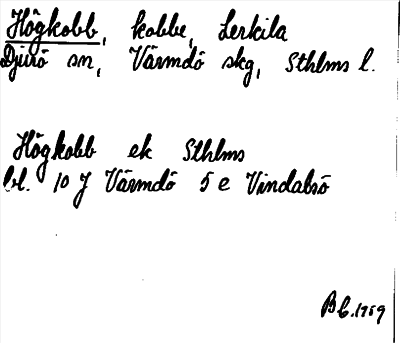 Högkobb, kobbe, Lerkila
Djurö sn, Värmdö skg, Sthlms l.
Högkobb ek Sthlms
bl. 10 J Värmdö 5 e Vindalsö
1959